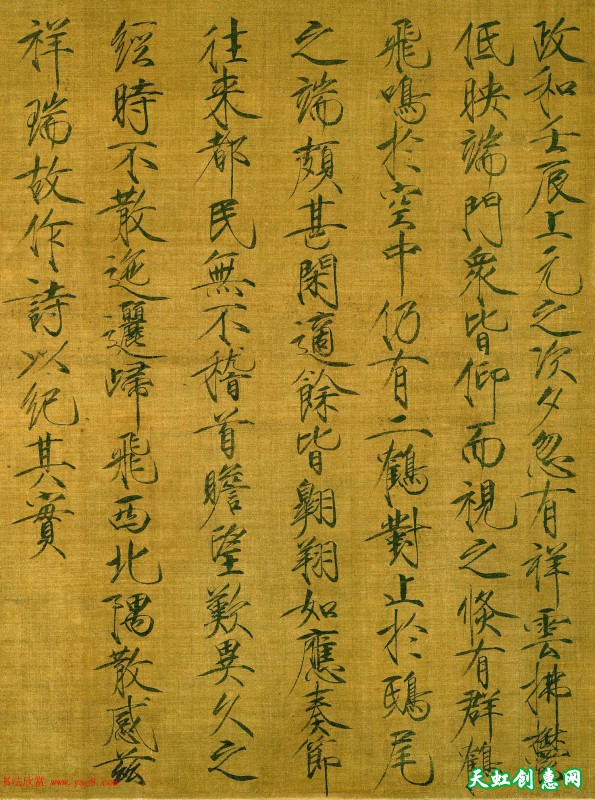 政和壬辰上元之次夕忽有祥雲拂鬱
低映端門衆皆仰而視之倏有群鶴
飛鳴於空中仍有二鶴對止於鴟尾
之端頗甚閑適餘皆翱翔如應奏節
往来都民無不稽首瞻望歎異久之
經時不散迤邐歸飛西北隅散感兹
祥瑞故作詩以紀其實
书法欣赏 www.yac8.com
天虹创惠网